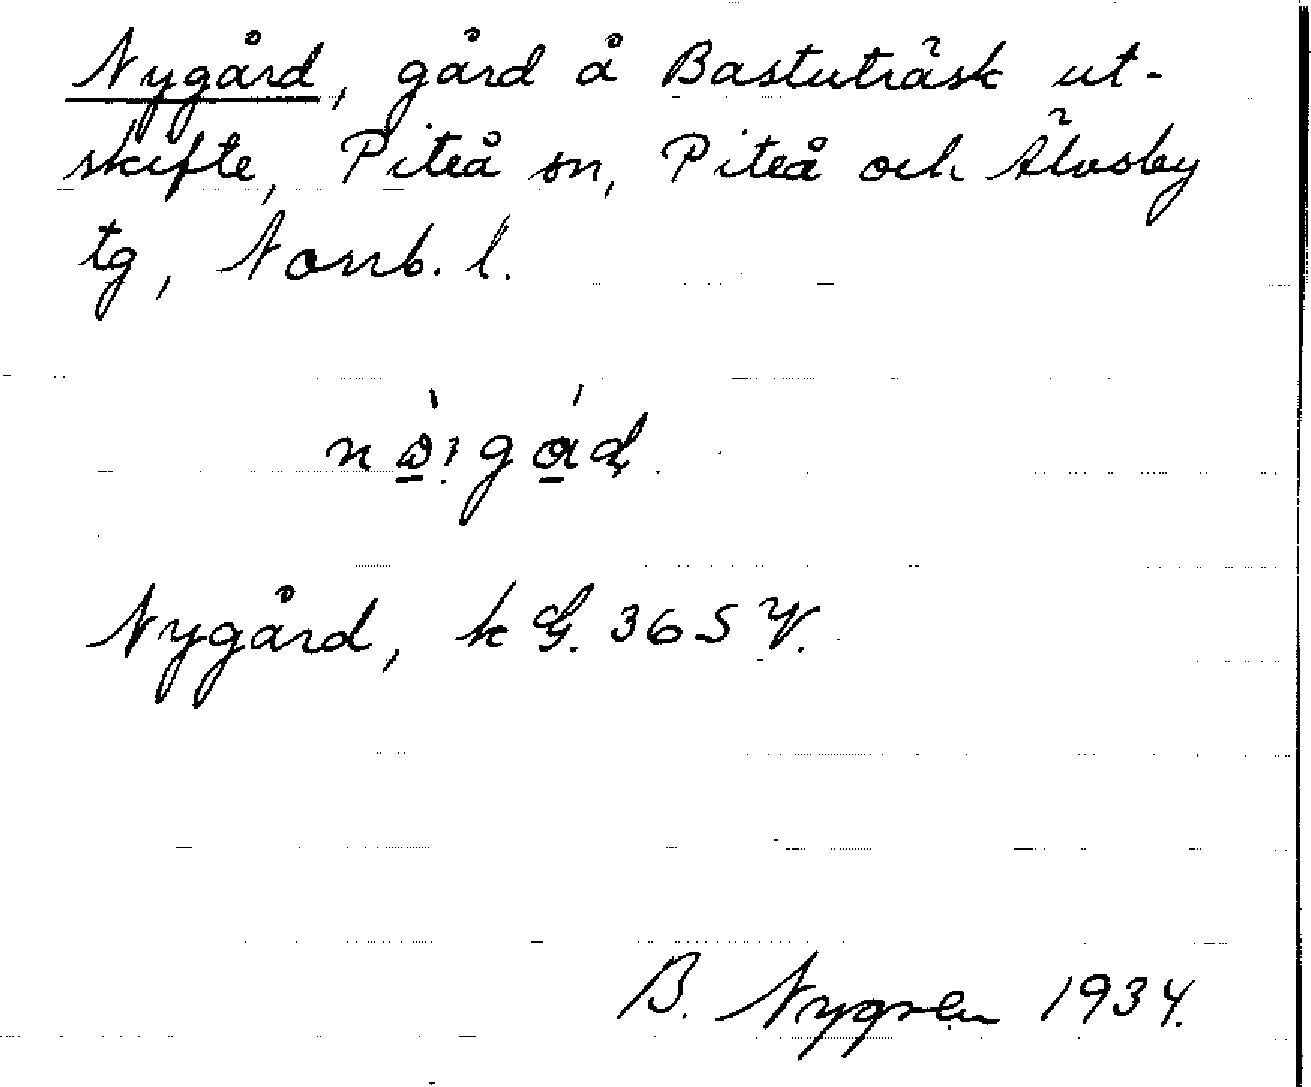 Nygård, gård å Bastuträsk ut-
skifte, Piteå sn, Piteå och Älvsby
tg, Norrb. l.
Nygård, k G. 365 V.
B. Nygren 1934.